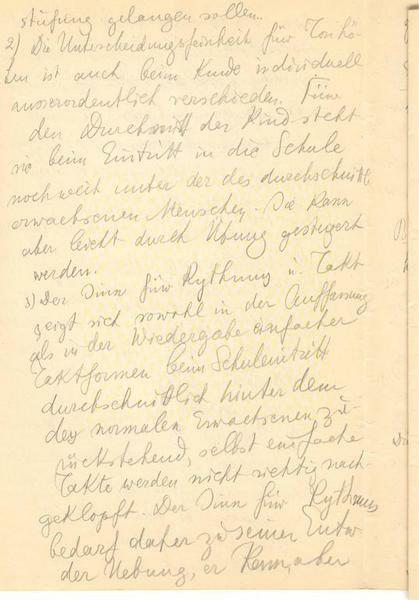 stufung gelangen sollen.
2) Die Unterscheidungsfeinheit für Tonhö-
en ist auch beim Kinde individuell
ausserordentlich verschieden. Für
den Durchschnitt der Kinder steht
sie beim Eintritt in die Schule
noch weit unter der des durchschnittl
erwachsenen Menschen. Sie kann
aber leicht durch Übung gesteigert
werden.
3) Der Sinn für Rythmus u. Takt
zeigt sich sowohl in der Auffassung
als in der Wiedergabe einfacher
Taktformen beim Schuleintritt
durchschnittlich hinter dem
des normalen Erwachsenen zu-
rückstehend, selbst einfache
Takte werden nicht richtig nach-
geklopft. Der Sinn für Rythmus
bedarf daher zu seiner Entw
der Uebung, er kann, aber